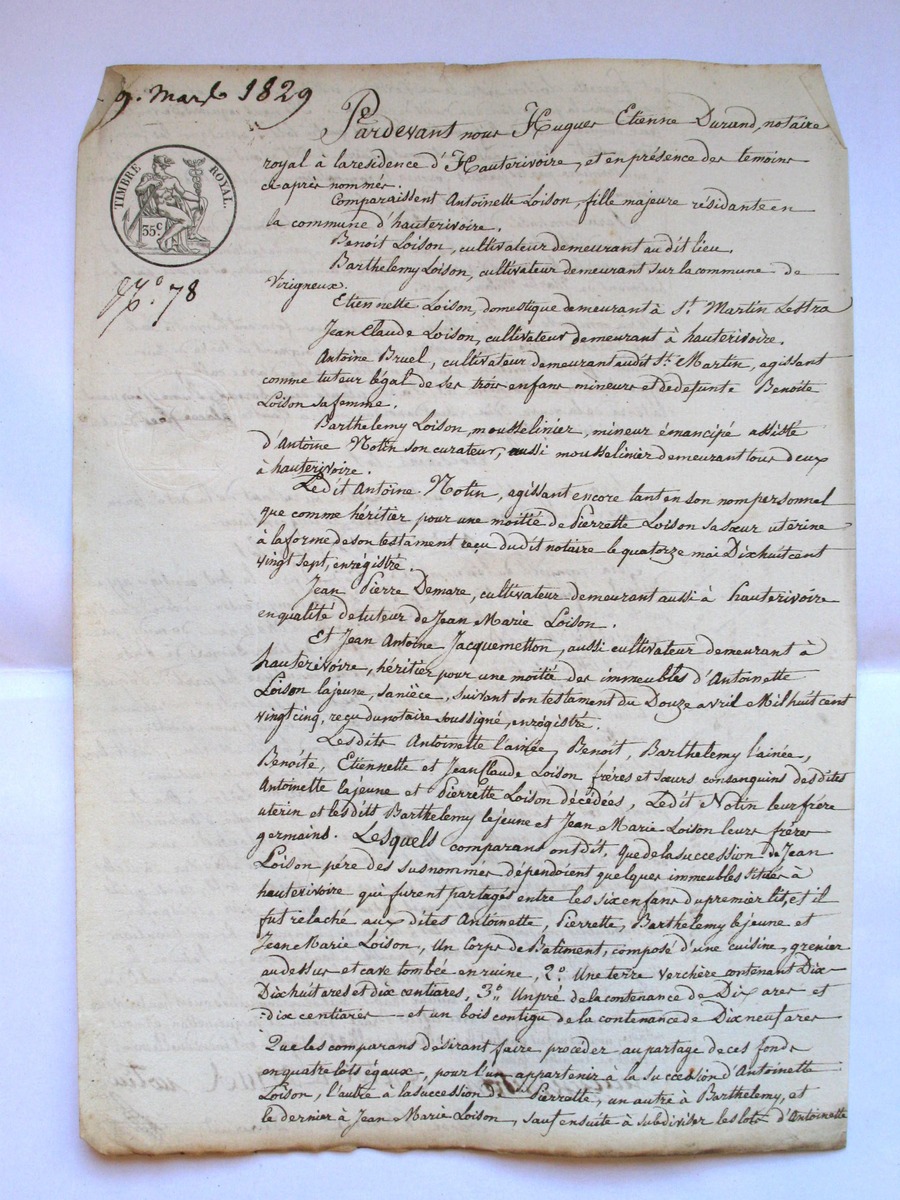 9. Mars 1829
TIMBRE ROYAL.
35 c.
No. 78
Pardevant nous Hugues Etienne Durand, notaire
royal à la residence d'Hauterivoire, et en présence des temoins
ci après nommés.
Comparaissent Antoinette Loison, fille majeure résidante en
la commune d'hauterivoire.
Benoit Loison, cultivateur demeurant au dit lieu.
Barthelemy Loison, cultivateur demeurant sur la commune de
Virigneux.
Etiennette Loison, domestique demeurant à St. Martin Lestra
Jean Claude Loison, cultivateur demeurant à hauterivoire.
Antoine Bruel, cultivateur demeurant audit St. Martin, agissant
comme tuteur légal de ses trois enfans mineurs et de defunte Benoite
Loison sa femme.
Barthelemy Loison, mousselinier, mineur émancipé assisté
d'Antoine Notin son curateur, aussi mousselinier demeurant tous deux
à hauterivoire.
Ledit Antoine Notin, agissant encore tant en son nom personnel
que comme héritier pour une moitié de Pierrette Loison sa sœur uterine
à la forme de son testament reçu du dit notaire le quatorze mai Dix huit cent
vingt sept, enregistré.
Jean Pierre Demare, cultivateur demeurant aussi à hauterivoire
en qualité de tuteur de Jean Marie Loison.
Et Jean Antoine Jacquemetton, aussi cultivateur demeurant à
hauterivoire, héritier pour une moitié des immeubles d'Antoinette
Loison la jeune, sa nièce, suivant son testament du Douze avril Mil huit cent
vingt cinq, reçu du notaire soussigné, enregistré.
Lesdits Antoinette l'ainée, Benoit, Barthelemy l'ainée,
Benoite, Etiennette et Jean Claude Loison frères et sœurs consanguins desdites
Antoinette la jeune et Pierrette Loison décédées, Ledit Notin leur frère
uterin et lesdits Barthelemy le jeune et Jean Marie Loison leurs frères
germains. Lesquels comparans ont dit, que de la succession de Jean
Loison père des susnommés dépendoient quelques immeubles situés à
hauterivoire qui furent partagés entre les six enfans du premier lit, et il
fut relaché aux dites Antoinette, Pierrette, Barthelemy le jeune et
Jean Marie Loison, Un Corps de Batiment, composé d'une cuisine, grenier
au dessus et cave tombée en ruine, 2o. Une terre verchère contenant Dix
Dix huit ares et dix centiares, 3o. Un pré de la contenance de Dix ares et
dix centiares - et un bois contigu de la contenance de Dix neuf ares
Que les comparans désirant faire procéder au partage de ces fonds
en quatre lots égaux, pour l'un appartenir à la succession d'Antoinette
Loison, l'autre à la succession de Pierrette, un autre à Barthelemy, et
le dernier à Jean Marie Loison, sauf ensuite à subdiviser les lots d'Antoinette